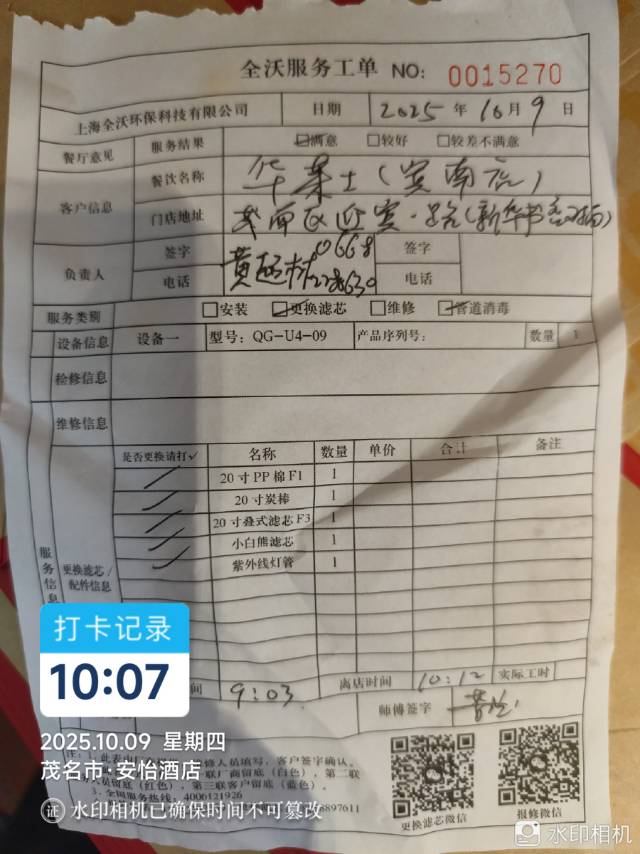 全沃服务工单 NO: 0015270
上海全沃环保科技有限公司 日期 2025 年 10 月 9 日
餐厅意见 服务结果 ☑满意 □较好 □较差不满意
客户信息 餐饮名称 华莱士(
门店地址 迎宾 路 (新华书店对面)
负责人 签字 黄 签字
电话 0668 228630 电话
服务类别 □安装 ☑更换滤芯 □维修 ☑管道消毒
设备信息 设备一 型号: QG-U4-09 产品序列号: 数量 1
检修信息
维修信息
服务信息 更换滤芯/配件信息
是否更换请打✓ 名称 数量 单价 合计 备注
20寸PP棉F1 1
20寸炭棒 1
20寸叠式滤芯F3 1
小白熊滤芯 1
紫外线灯管 1
打卡记录
10:07
间 9:03 离店时间 10:12 实际工时
师傅签字
2025.10.09 星期四
茂名市·安怡酒店
注: 1.此表由 修人员填写, 客户签字确认。
一联厂商留底(白色), 第二联
人员留底(红色), 第三联客户留底(蓝色)。
3.全国服务热线: 4000121926
6897611
水印相机已确保时间不可篡改
更换滤芯微信 报修微信
水印相机